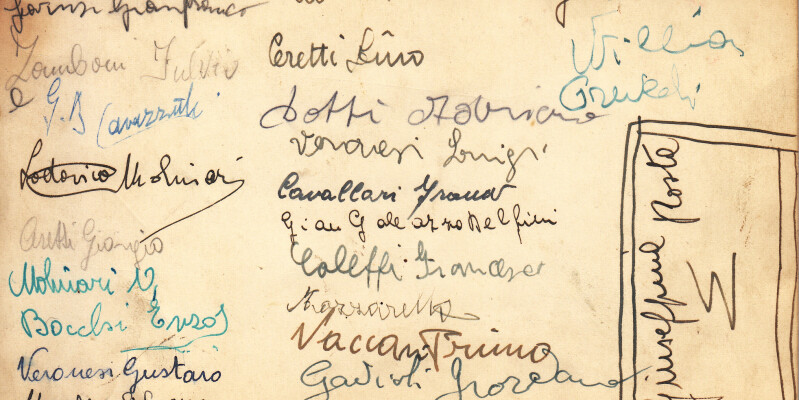 Gianfranco
Zamboni Fulvio
e G.B Cavazzuti
Lodovico Molinari
Aretti Giorgio
Molinari V.
Bocchi Enzo
Veronesi Gustavo
Ceretti Lino
Dotti Adriano
Veronesi Luigi
Cavallari Franco
Gian Galeazzo Delfini
Coleffi Francesco
Mazzarella
Vaccari Primo
Gavioli Giordano
Willia
Giuseppina